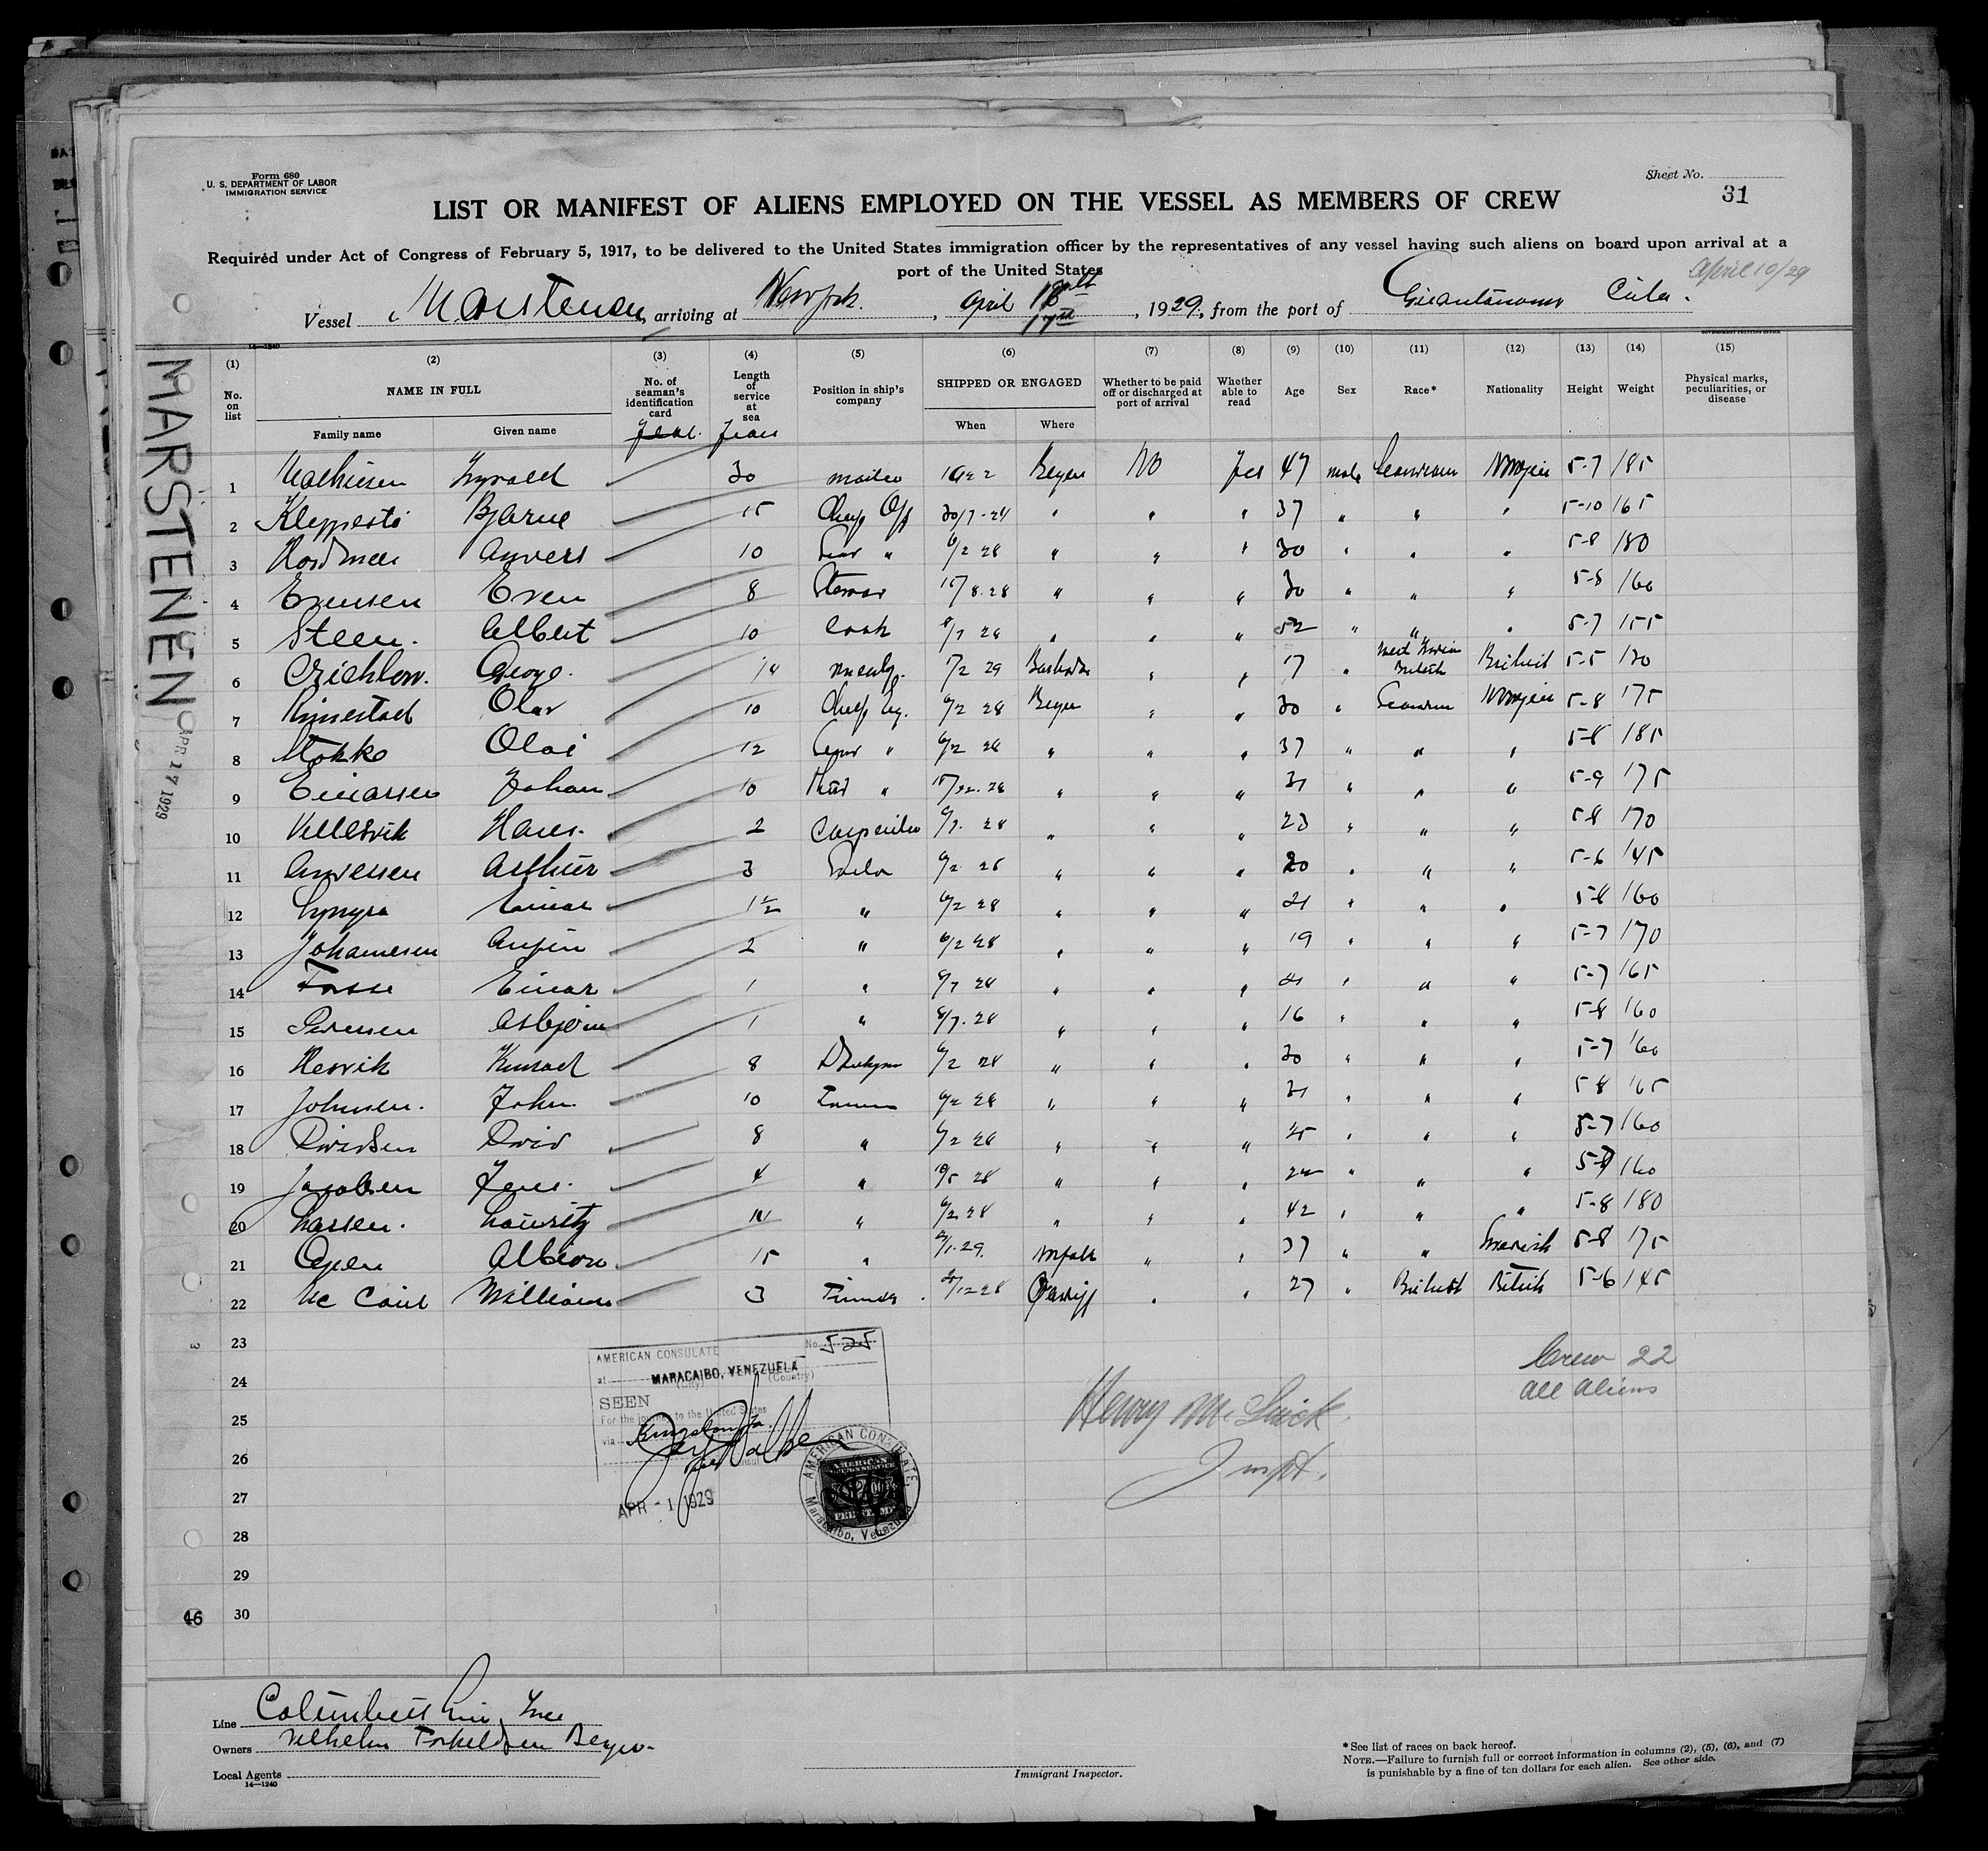 Form 680
U. S. DEPARTMENT OF LABOR
IMMIGRATION SERVICE
Sheet No.
31
LIST OR MANIFEST OF ALIENS EMPLOYED ON THE VESSEL AS MEMBERS OF CREW
Required under Act of Congress of February 5, 1917, to be delivered to the United States immigration officer by the representatives of any vessel having such aliens on board upon arrival at a
port of the United States
April 10/29
Vessel Marstenen, arriving at New York, April 17th, 1929, from the port of Guantanamo Cuba.
MARSTENEN
APR 17 1929
14—1240
GOVERNMENT PRINTING OFFICE
(1) (2) (3) (4) (5) (6) (7) (8) (9) (10) (11) (12) (13) (14) (15)
No. on list
NAME IN FULL
Family name
Given name
No. of seaman's identification card
Length of service at sea
Years
Position in ship's company
SHIPPED OR ENGAGED
When
Where
Whether to be paid off or discharged at port of arrival
Whether able to read
Age
Sex
Race*
Nationality
Height
Weight
Physical marks, peculiarities, or disease
1 Mathiesen 30 Bergen No Yes 47 male 5-7 185
2 Kleppestö Bjarne 15 30/7-24 " " " 37 " " " 5-10 165
3 10 " 6/2 28 " " " 30 " " " 5-8 180
4 Evensen Even 8 15/8.28 " " " 30 " " " 5-8 160
5 Steen. Albert 10 Cook 8/7 28 " " " 52 " " " 5-7 155
6 Crichlow. George. 7/2 29 Barbados " " 17 " West Indian British British 5-5 130
7 Rimestad Olav 10 6/2 28 Bergen " " 30 " 5-8 175
8 Stokke Olai 12 " 6/2 28 " " " 37 " " " 5-8 185
9 Einarsen Johan 10 Third " " " " 31 " " " 5-9 175
10 Vellesvik Hans. 2 Carpenter 28 " " " 23 " " " 5-8 170
11 Andersen Arthur 3 Sailor 6/2 " " " 20 " " " 5-6 145
12 Einar 1½ " 6/2 28 " " " 21 " " " 5-8 160
13 Johannesen 2 " 6/2 28 " " " 19 " " " 5-7 170
14 Fosse Einar 1 " 8/7 28 " " " 21 " " " 5-7 165
15 Asbjörn 1 " 8/7.28 " " " 16 " " " 5-8 160
16 Hesvik 8 6/2 28 " " " 30 " " " 5-7 160
17 Johnsen. John 10 6/2 28 " " " 31 " " " 5-8 165
18 Davidsen David 8 " 6/2 28 " " " 25 " " " 5-7 160
19 Jacobsen Jens. 4 " 28 " " " " " " 160
20 Larsen. Lauritz " 6/2.28 " " " 42 " " " 5-8 180
21 Albion 15 " 29. " " 37 " " Swedish 5-8 175
22 Mc Caul William 3 Cardiff " " 27 " British British 5-6 145
23
24
25
26
27
28
29
30
AMERICAN CONSULATE
No. 525
at MARACAIBO, VENEZUELA
(City) (Country)
SEEN
For the journey to the United States
via
APR -1 1929
AMERICAN CONSULATE
Maracaibo, Venezuela
Crew 22
All Aliens
Inspt.
46
Line Columbus Line Inc
Owners Vilhelm Torkildsen Bergen.
Local Agents
14—1240
Immigrant Inspector.
*See list of races on back hereof.
NOTE.—Failure to furnish full or correct information in columns (2), (5), (6), and (7)
is punishable by a fine of ten dollars for each alien. See other side.